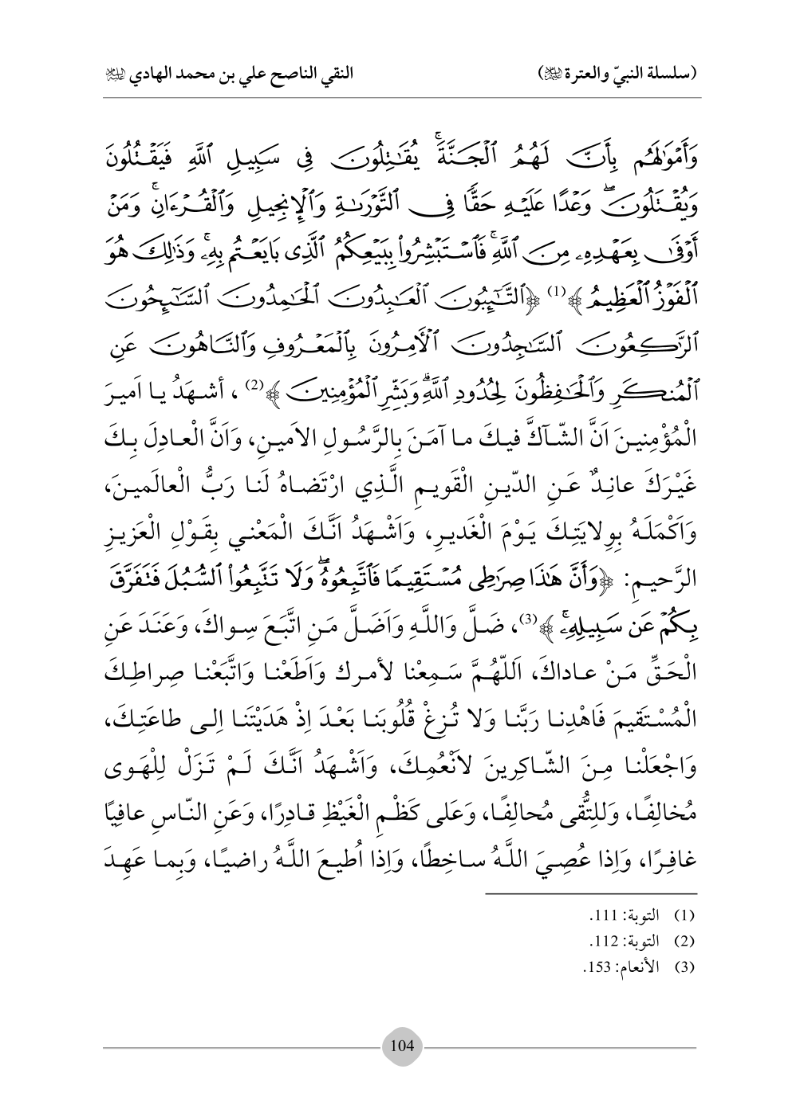 (سلسلة النبيّ والعترة ﷺ) النقي الناصح علي بن محمد الهادي
وَأَمْوَٰلَهُم بِأَنَّ لَهُمُ ٱلْجَنَّةَ ۚ يُقَٰتِلُونَ فِى سَبِيلِ ٱللَّهِ فَيَقْتُلُونَ
وَيُقْتَلُونَ ۖ وَعْدًا عَلَيْهِ حَقًّا فِى ٱلتَّوْرَىٰةِ وَٱلْإِنجِيلِ وَٱلْقُرْءَانِ ۚ وَمَنْ
أَوْفَىٰ بِعَهْدِهِۦ مِنَ ٱللَّهِ ۚ فَٱسْتَبْشِرُوا۟ بِبَيْعِكُمُ ٱلَّذِى بَايَعْتُم بِهِۦ ۚ وَذَٰلِكَ هُوَ
ٱلْفَوْزُ ٱلْعَظِيمُ ﴾(1) ﴿ٱلتَّٰٓئِبُونَ ٱلْعَٰبِدُونَ ٱلْحَٰمِدُونَ ٱلسَّٰٓئِحُونَ
ٱلرَّٰكِعُونَ ٱلسَّٰجِدُونَ ٱلْءَامِرُونَ بِٱلْمَعْرُوفِ وَٱلنَّاهُونَ عَنِ
ٱلْمُنكَرِ وَٱلْحَٰفِظُونَ لِحُدُودِ ٱللَّهِ ۗ وَبَشِّرِ ٱلْمُؤْمِنِينَ ﴾(2) ، أشهَدُ يا اَميرَ
الْمُؤْمِنينَ اَنَّ الشّاكَّ فيكَ ما آمَنَ بِالرَّسُولِ الاَمينِ، وَاَنَّ الْعادِلَ بِكَ
غَيْرَكَ عانِدٌ عَنِ الدّينِ الْقَويمِ الَّذِي ارْتَضاهُ لَنا رَبُّ الْعالَمينَ،
وَاَكْمَلَهُ بِوِلايَتِكَ يَوْمَ الْغَديرِ، وَاَشْهَدُ اَنَّكَ الْمَعْني بِقَوْلِ الْعَزيزِ
الرَّحيمِ: ﴿وَأَنَّ هَٰذَا صِرَٰطِى مُسْتَقِيمًا فَٱتَّبِعُوهُ ۖ وَلَا تَتَّبِعُوا۟ ٱلسُّبُلَ فَتَفَرَّقَ
بِكُمْ عَن سَبِيلِهِۦ ۚ ﴾(3)، ضَلَّ وَاللَّهِ وَاَضَلَّ مَنِ اتَّبَعَ سِواكَ، وَعَنَدَ عَنِ
الْحَقِّ مَنْ عاداكَ، اَللّهُمَّ سَمِعْنا لأمرك وَاَطَعْنا وَاتَّبَعْنا صِراطِكَ
الْمُسْتَقيمَ فَاهْدِنا رَبَّنا وَلا تُزِغْ قُلُوبَنا بَعْدَ اِذْ هَدَيْتَنا اِلى طاعَتِكَ،
وَاجْعَلْنا مِنَ الشّاكِرينَ لاَنْعُمِكَ، وَاَشْهَدُ اَنَّكَ لَمْ تَزَلْ لِلْهَوى
مُخالِفًا، وَلِلتُّقى مُحالِفًا، وَعَلى كَظْمِ الْغَيْظِ قادِرًا، وَعَنِ النّاسِ عافِيًا
غافِرًا، وَاِذا عُصِيَ اللَّهُ ساخِطًا، وَاِذا اُطيعَ اللَّهُ راضيًا، وَبِما عَهِدَ
(1) التوبة: 111.
(2) التوبة: 112.
(3) الأنعام: 153.
104